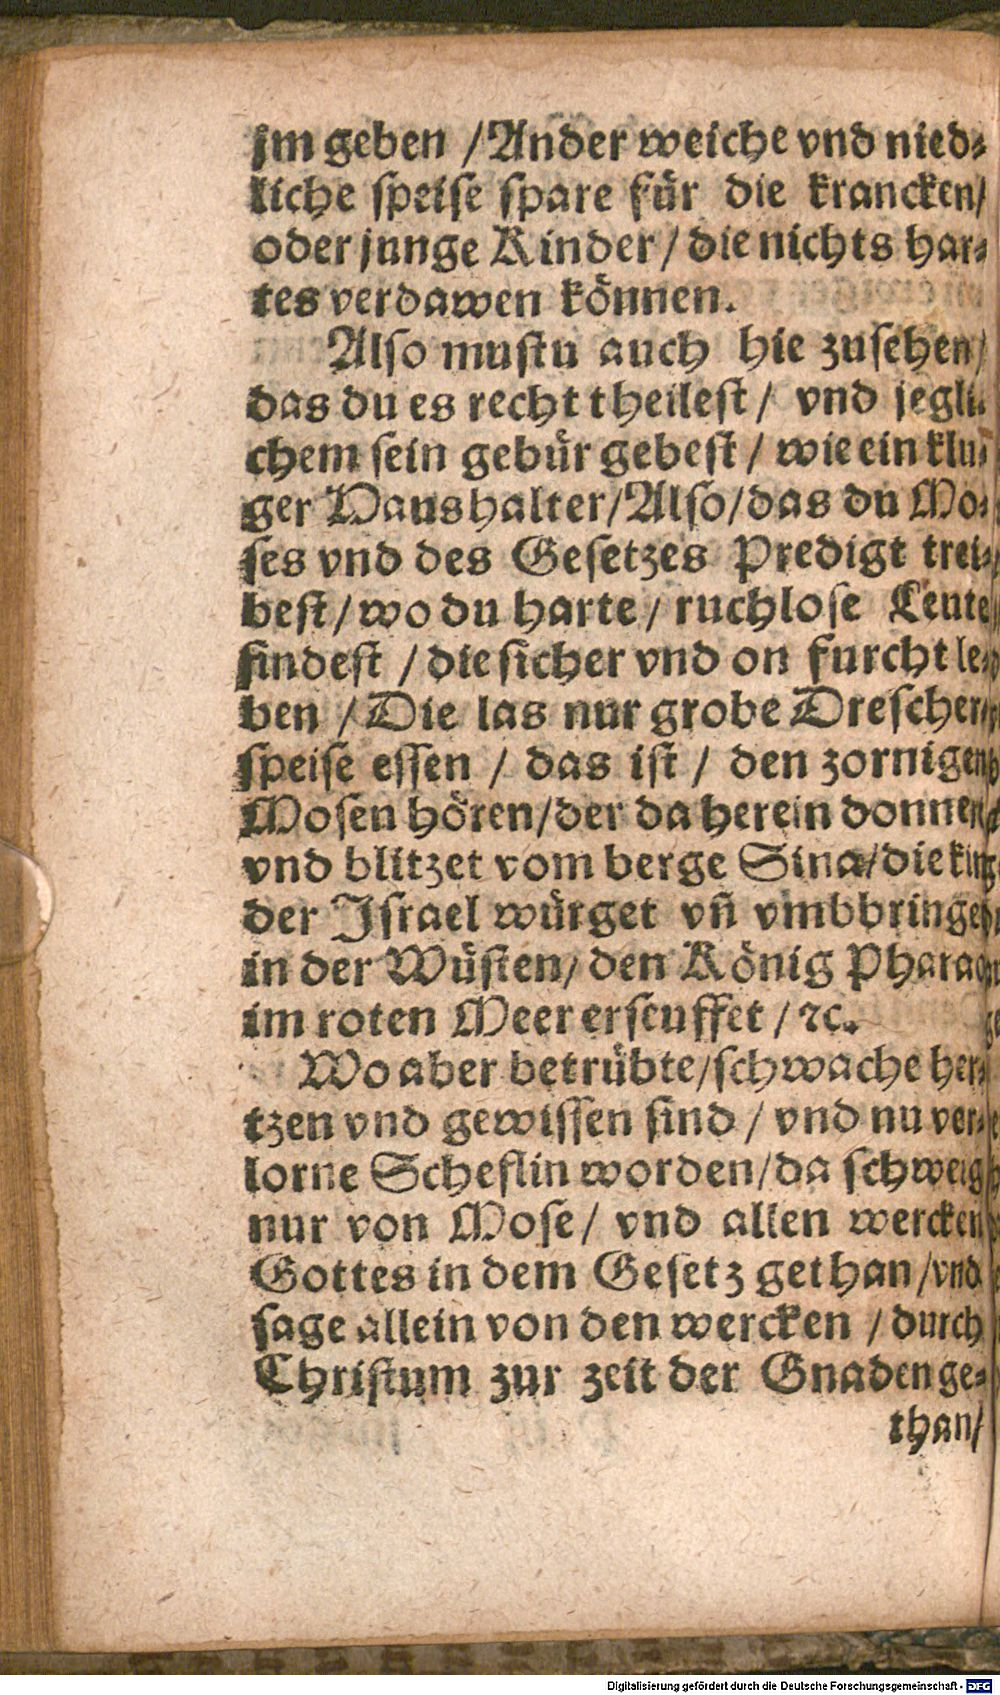 jm geben / Ander weiche vnd nied⸗
liche speise spare für die krancken/
oder junge Kinder / die nichts har⸗
tes verdawen können.
Also mustu auch hie zusehen/
das du es recht theilest / vnd jegli⸗
chem sein gebür gebest / wie ein klu⸗
ger Haushalter/Also/das du Mo⸗
ses vnd des Gesetzes Predigt trei⸗
best / wo du harte / ruchlose Leute
findest / die sicher vnd on furcht le⸗
ben / Die las nur grobe Drescher⸗
speise essen / das ist / den zornigen
Mosen hören/der da herein donnert
vnd blitzet vom berge Sina/die kin⸗
der Israel würget vñ vmbbringet
in der Wüsten/ den König Pharao
im roten Meer erseuffet / ꝛc.
Wo aber betrübte/schwache her⸗
tzen vnd gewissen sind / vnd nu ver⸗
lorne Scheflin worden/da schweig
nur von Mose/ vnd allen wercken
Gottes in dem Gesetz gethan /vnd
sage allein von den wercken / durch
Christum zur zeit der Gnaden ge⸗
than/
Digitalisierung gefördert durch die Deutsche Forschungsgemeinschaft - DFG